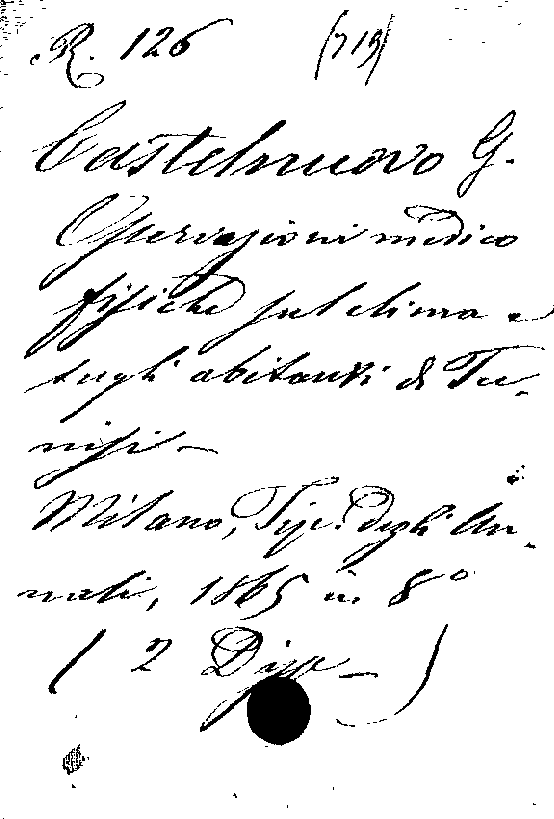 R. 126 (719)
Castelnuovo G.
Osservazioni medico
fisiche sul clima e
sugli abitanti di Tu-
nisi -
Milano, Tip. degli An-
nali, 1865 in 8°
( 2 Disp - )